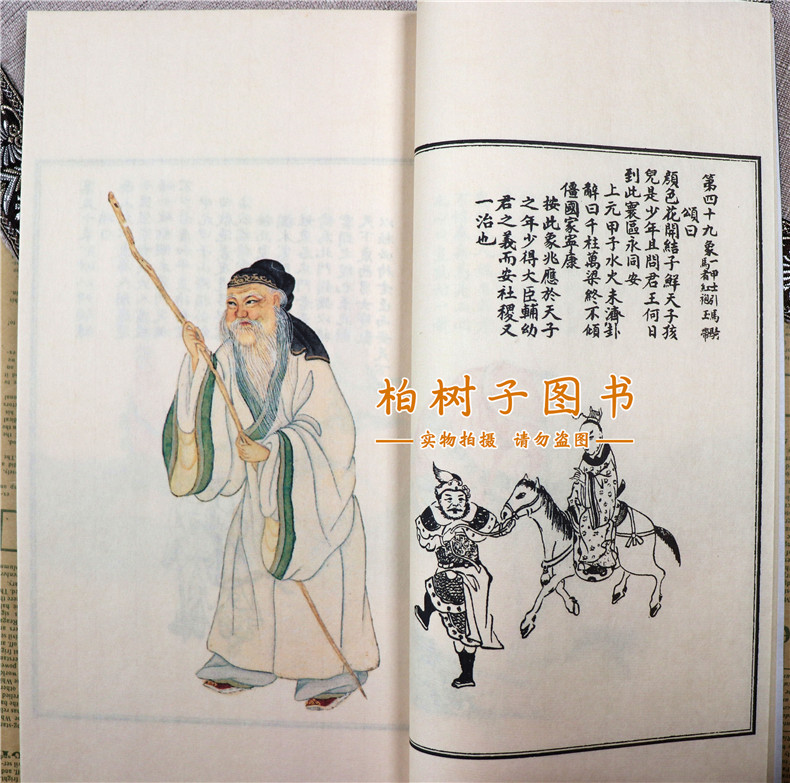 第四十九象 一甲士引馬騎
馬者紅袍玉帶
頌曰
顏色花開結子鮮天子孩
兒是少年且問君王何日
到此寰區永同安
上元甲子水火未濟卦
解曰千柱萬梁終不傾
僵國家寧康
按此象兆應於天子
之年少得大臣輔幼
君之義而安社稷又
一治也
柏树子图书
实物拍摄 请勿盗图